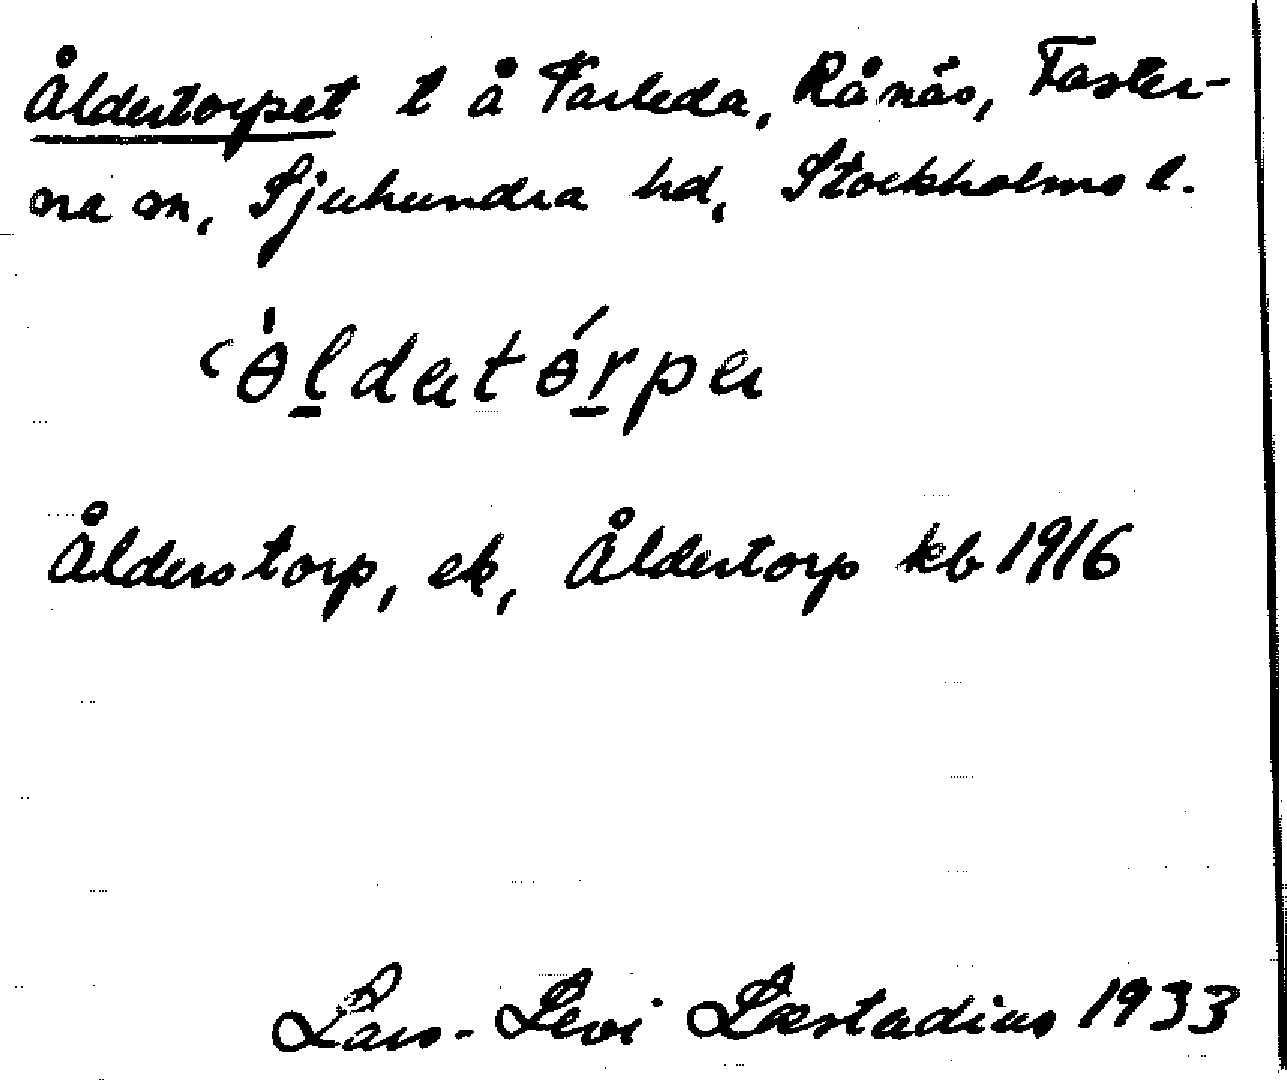 Åldertorpet t å Varleda, Rånäs, Faster-
na sn, Sjuhundra hd, Stockholms l.
ˋɵldatɵ́rpa
Ålderstorp, ek, Åldertorp kb 1916
Lars-Levi Læstadius 1933